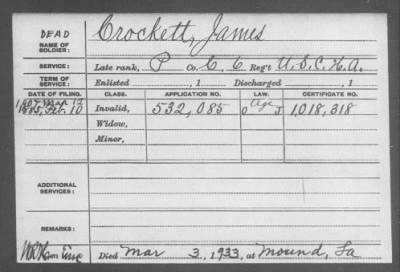 DEAD
NAME OF SOLDIER: Crockett, James
SERVICE: Late rank, P Co. C, 6 Reg't U.S.C.H.A.
TERM OF SERVICE: Enlisted , 1 Discharged , 1
DATE OF FILING. CLASS. APPLICATION NO. LAW. CERTIFICATE NO.
1907 Mar 12 Age
1885, Feb. 10 Invalid, 532,085 1,018,318
Widow,
Minor,
ADDITIONAL SERVICES:
REMARKS:
Died Mar 3, 1933, at Mound, La